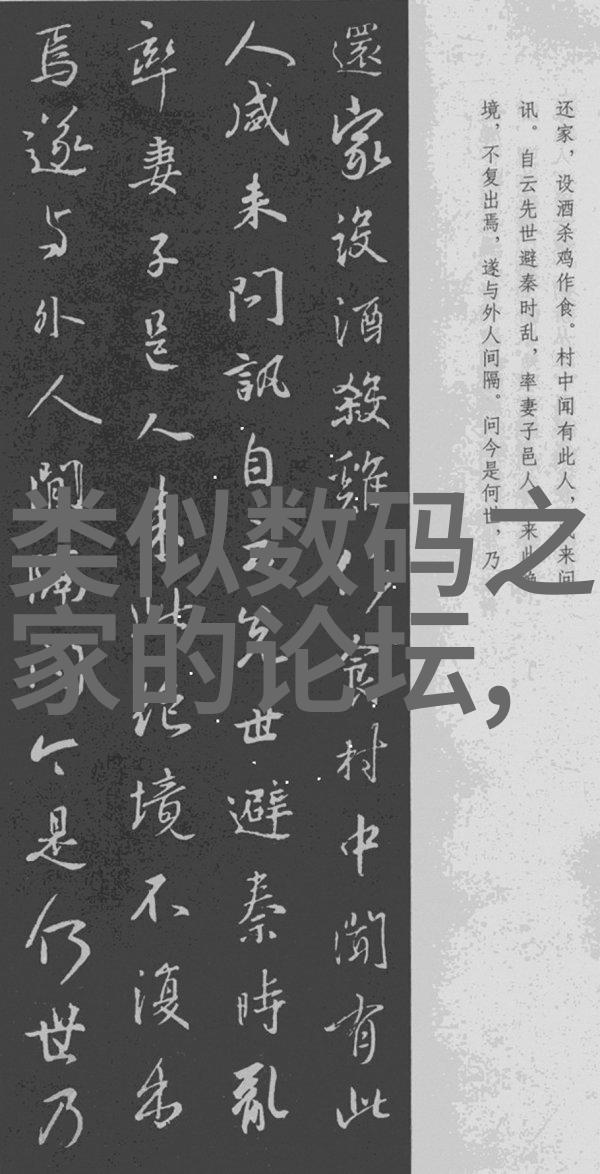 还家，设酒杀鸡作食。村中闻有此人，咸来问
讯。自云先世避秦时乱，率妻子邑人来此绝
境，不复出焉，遂与外人间隔。问今是何世，乃
還家設酒殺雞作食村中聞有此
人咸来問訊自云先世避秦時亂
率妻子邑人来此絶境不復出
焉遂与外人間隔问今是何世乃
类似数码之
家的论坛,